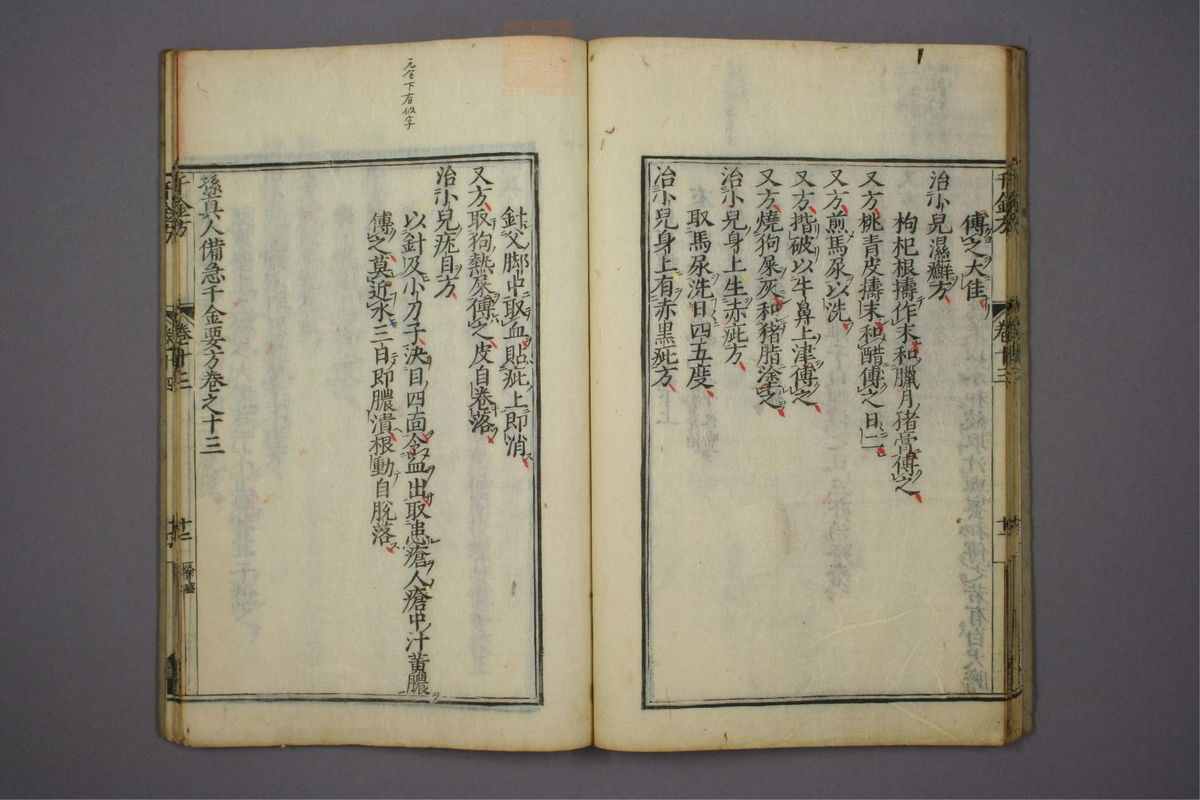 傅之大佳
治小兒濕癬方
枸杞根擣作末和臘月猪膏傅之
又方桃青皮擣末和醋傅之日二
又方煎馬尿以洗
又方揩破以牛鼻上津傅之
又方燒狗屎灰和猪脂塗之
治小兒身上生赤疵方
取馬尿洗日四五度
治小兒身上有赤黑疵方
針父脚中取血貼疵上即消
又方取狗熱尿傅之皮自卷落
治小兒疣目方
以針及小刀子決目四面令血出取患瘡人瘡中汁黄膿
傅之莫近水三日即膿潰根動自脫落
孫真人備急千金要方卷之十三